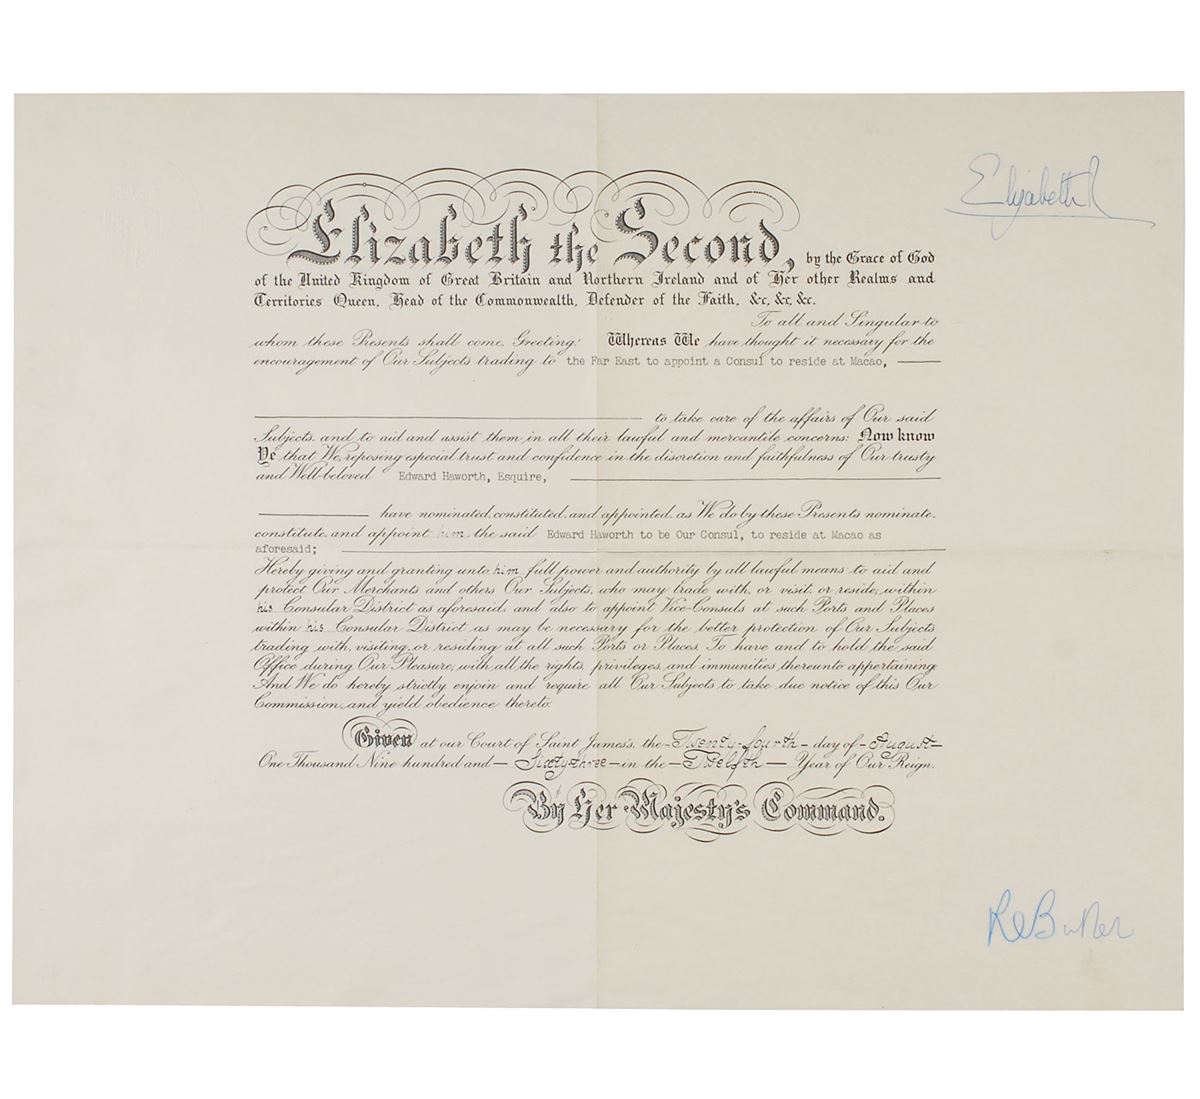 Elizabeth R
Elizabeth the Second, by the Grace of God
of the United Kingdom of Great Britain and Northern Ireland and of Her other Realms and
Territories Queen, Head of the Commonwealth, Defender of the Faith, &c, &c, &c.
To all and Singular to
whom these Presents shall come, Greeting! Whereas We have thought it necessary for the
encouragement of Our Subjects trading to the Far East to appoint a Consul to reside at Macao,
to take care of the affairs of Our said
Subjects, and to aid and assist them in all their lawful and mercantile concerns: Now know
Ye that We, reposing especial trust and confidence in the discretion and faithfulness of Our trusty
and Well-beloved Edward Haworth, Esquire,
have nominated, constituted, and appointed, as We do by these Presents nominate,
constitute, and appoint him, the said Edward Haworth to be Our Consul, to reside at Macao as
aforesaid;
Hereby giving and granting unto him full power and authority by all lawful means to aid and
protect Our Merchants and others Our Subjects, who may trade with, or visit, or reside, within
his Consular District as aforesaid, and also to appoint Vice-Consuls at such Ports and Places
within his Consular District as may be necessary for the better protection of Our Subjects
trading with, visiting, or residing at all such Ports or Places, To have and to hold the said
Office during Our Pleasure, with all the rights, privileges, and immunities thereunto appertaining
And We do hereby strictly enjoin and require all Our Subjects to take due notice of this Our
Commission, and yield obedience thereto.
Given at our Court of Saint James's, the - Twenty-fourth - day of - August -
One Thousand Nine hundred and - Sixty-three - in the - Twelfth - Year of Our Reign.
By Her Majesty's Command.
RAButler